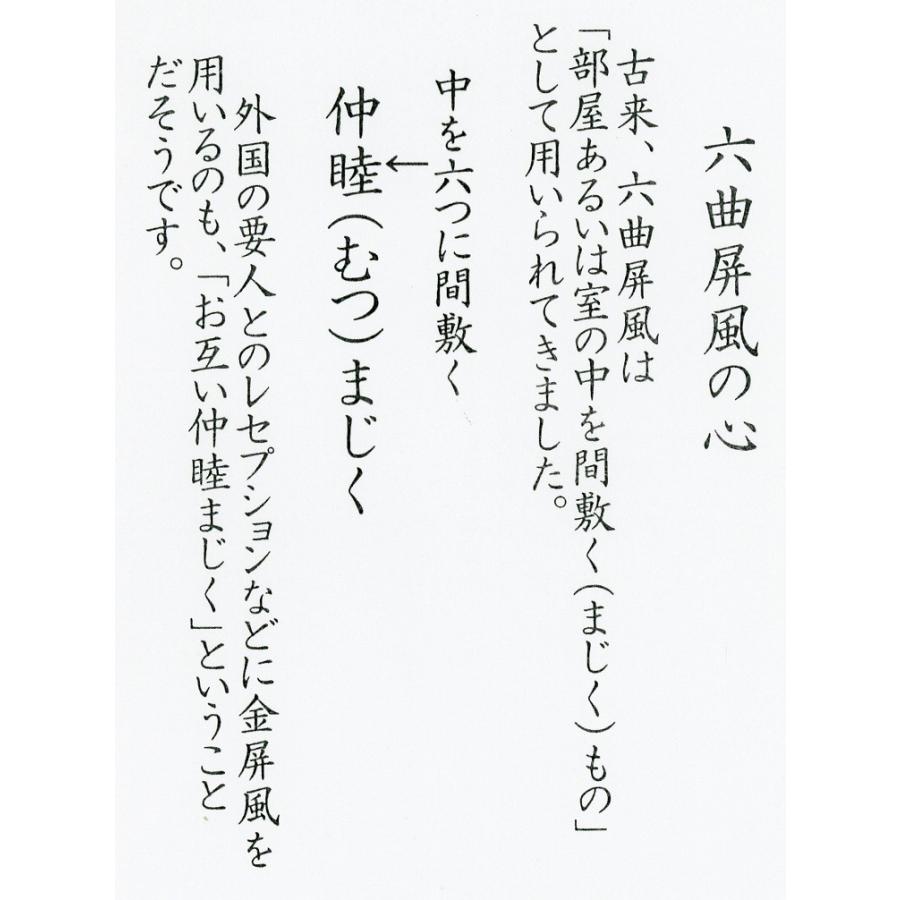 六曲屏風の心
古来、六曲屏風は
「部屋あるいは室の中を間敷く(まじく)もの」
として用いられてきました。
中を六つに間敷く
←
仲睦(むつ)まじく
外国の要人とのレセプションなどに金屏風を
用いるのも、「お互い仲睦まじく」ということ
だそうです。